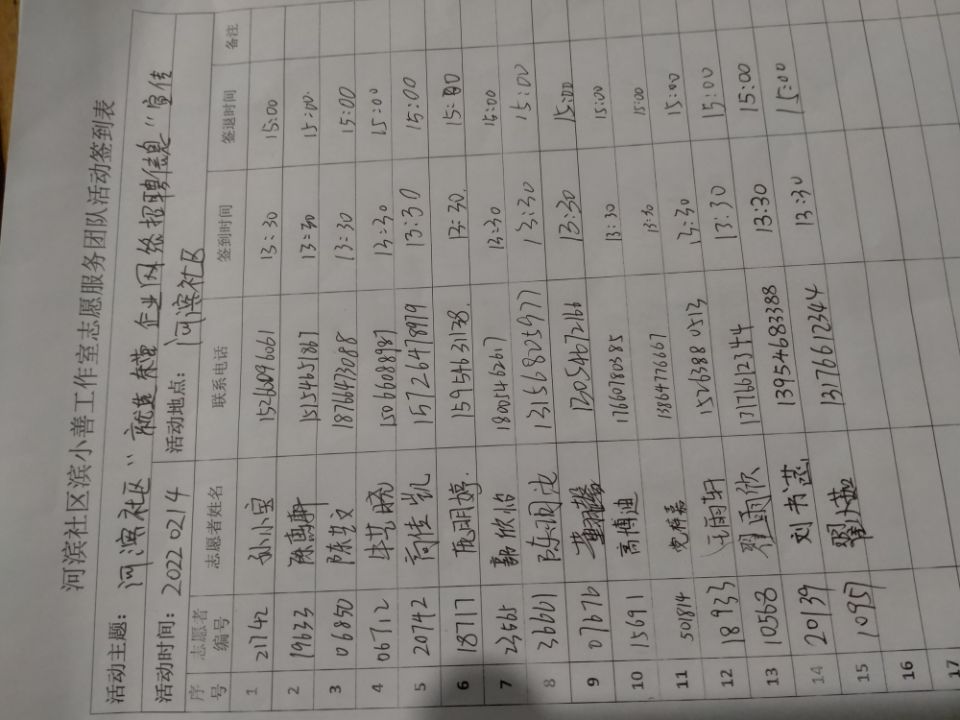 河滨社区滨小善工作室志愿服务团队活动签到表
活动主题: 河滨社区"就选东营 企业网络招聘信息"宣传
活动时间: 20220214 活动地点: 河滨社区
序号 志愿者编号 志愿者姓名 联系电话 签到时间 签退时间 备注
1 21742 孙小宝 15266096061 13:30 15:00
2 19633 陈 15154651867 13:30 15:00
3 06850 陈艺文 18766473088 13:30 15:00
4 06712 毕艺晓 15066088987 13:30 15:00
5 20742 高佳凯 15726478979 13:30 15:00
6 18717 明婷 1595463138 13:30 15:00
7 23565 郭欣怡 18005462617 13:30 15:00
8 36601 陈 13156805977 13:30 15:00
9 07676 董 13054672166 13:30 15:00
10 15691 高博迪 17660780385 13:30 15:00
11 501814 13864776667 13:30 15:00
12 18933 雨轩 15263880513 13:30 15:00
13 10568 翟雨欣 13176612344 13:30 15:00
14 20139 刘书菡 13954683388 13:30 15:00
15 10957 翟 13176612344
16
17